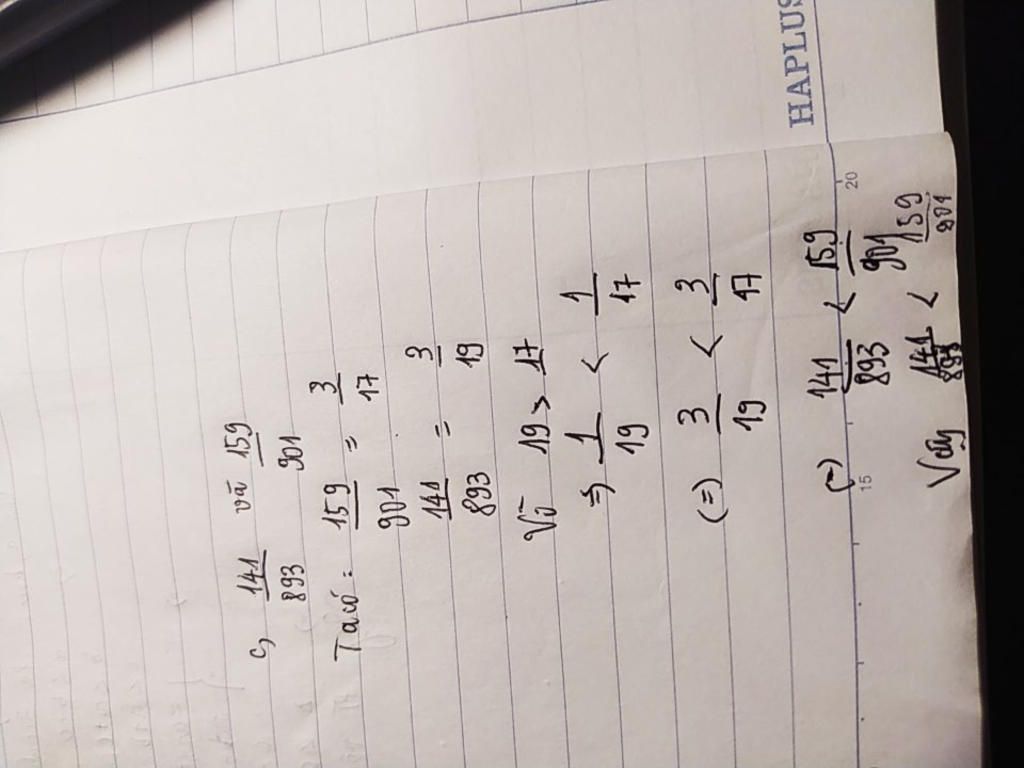 c, 141/893 và 159/901
Ta có: 159/901 = 3/17
141/893 = 3/19
Vì 19 > 17
=> 1/19 < 1/17
(=) 3/19 < 3/17
(=) 141/893 < 159/901
Vậy 141/893 < 159/901
15 20
HAPLUS